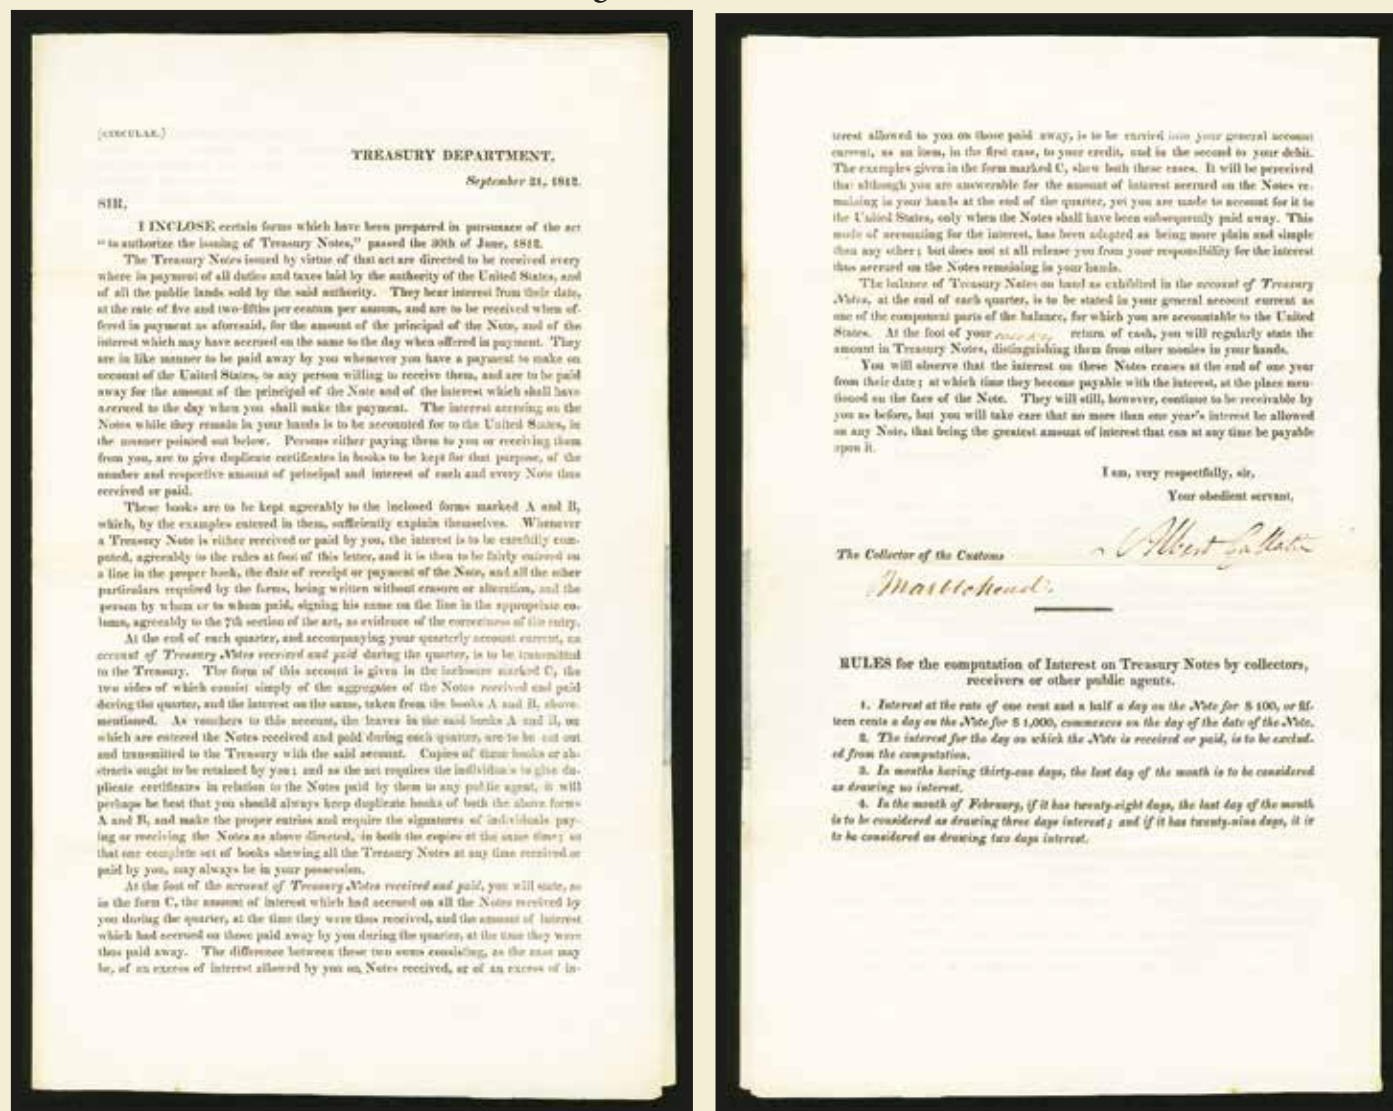 (CIRCULAR.)
TREASURY DEPARTMENT,
September 21, 1812.
SIR,
I INCLOSE certain forms which have been prepared in pursuance of the act
"to authorize the issuing of Treasury Notes," passed the 30th of June, 1812.
The Treasury Notes issued by virtue of that act are directed to be received every
where in payment of all duties and taxes laid by the authority of the United States, and
of all the public lands sold by the said authority. They bear interest from their date,
at the rate of five and two-fifths per centum per annum, and are to be received when of-
fered in payment as aforesaid, for the amount of the principal of the Note, and of the
interest which may have accrued on the same to the day when offered in payment. They
are in like manner to be paid away by you whenever you have a payment to make on
account of the United States, to any person willing to receive them, and are to be paid
away for the amount of the principal of the Note and of the interest which shall have
accrued to the day when you shall make the payment. The interest accruing on the
Notes while they remain in your hands is to be accounted for to the United States, in
the manner pointed out below. Persons either paying them to you or receiving them
from you, are to give duplicate certificates in books to be kept for that purpose, of the
number and respective amount of principal and interest of each and every Note thus
received or paid.
These books are to be kept agreeably to the inclosed forms marked A and B,
which, by the examples entered in them, sufficiently explain themselves. Whenever
a Treasury Note is either received or paid by you, the interest is to be carefully com-
puted, agreeably to the rules at foot of this letter, and it is then to be fairly entered on
a line in the proper book, the date of receipt or payment of the Note, and all the other
particulars required by the forms, being written without erasure or alteration, and the
person by whom or to whom paid, signing his name on the line in the appropriate co-
lumn, agreeably to the 7th section of the act, as evidence of the correctness of the entry.
At the end of each quarter, and accompanying your quarterly account current, an
account of Treasury Notes received and paid during the quarter, is to be transmitted
to the Treasury. The form of this account is given in the inclosure marked C, the
two sides of which consist simply of the aggregates of the Notes received and paid
during the quarter, and the interest on the same, taken from the books A and B, above-
mentioned. As vouchers to this account, the leaves in the said books A and B, on
which are entered the Notes received and paid during each quarter, are to be cut out
and transmitted to the Treasury with the said account. Copies of these books or ab-
stracts ought to be retained by you; and as the act requires the individuals to give du-
plicate certificates in relation to the Notes paid by them to any public agent, it will
perhaps be best that you should always keep duplicate books of both the above forms
A and B, and make the proper entries and require the signatures of individuals pay-
ing or receiving the Notes as above directed, in both the copies at the same time; so
that one complete set of books shewing all the Treasury Notes at any time received or
paid by you, may always be in your possession.
At the foot of the account of Treasury Notes received and paid, you will state, as
in the form C, the amount of interest which had accrued on all the Notes received by
you during the quarter, at the time they were thus received, and the amount of interest
which had accrued on those paid away by you during the quarter, at the time they were
thus paid away. The difference between these two sums consisting, as the case may
be, of an excess of interest allowed by you on Notes received, or of an excess of in-
terest allowed to you on those paid away, is to be carried into your general account
current, as an item, in the first case, to your credit, and in the second to your debit.
The examples given in the form marked C, shew both these cases. It will be perceived
that although you are answerable for the amount of interest accrued on the Notes re-
maining in your hands at the end of the quarter, yet you are made to account for it to
the United States, only when the Notes shall have been subsequently paid away. This
mode of accounting for the interest, has been adopted as being more plain and simple
than any other; but does not at all release you from your responsibility for the interest
thus accrued on the Notes remaining in your hands.
The balance of Treasury Notes on hand as exhibited in the account of Treasury
Notes, at the end of each quarter, is to be stated in your general account current as
one of the component parts of the balance, for which you are accountable to the United
States. At the foot of your return of cash, you will regularly state the
amount in Treasury Notes, distinguishing them from other monies in your hands.
You will observe that the interest on these Notes ceases at the end of one year
from their date; at which time they become payable with the interest, at the place men-
tioned on the face of the Note. They will still, however, continue to be receivable by
you as before, but you will take care that no more than one year's interest be allowed
on any Note, that being the greatest amount of interest that can at any time be payable
upon it.
I am, very respectfully, sir,
Your obedient servant,
Albert Gallatin
The Collector of the Customs
Marblehead.
RULES for the computation of Interest on Treasury Notes by collectors,
receivers or other public agents.
1. Interest at the rate of one cent and a half a day on the Note for $ 100, or fif-
teen cents a day on the Note for $ 1,000, commences on the day of the date of the Note.
2. The interest for the day on which the Note is received or paid, is to be exclud-
ed from the computation.
3. In months having thirty-one days, the last day of the month is to be considered
as drawing no interest.
4. In the month of February, if it has twenty-eight days, the last day of the month
is to be considered as drawing three days interest; and if it has twenty-nine days, it is
to be considered as drawing two days interest.